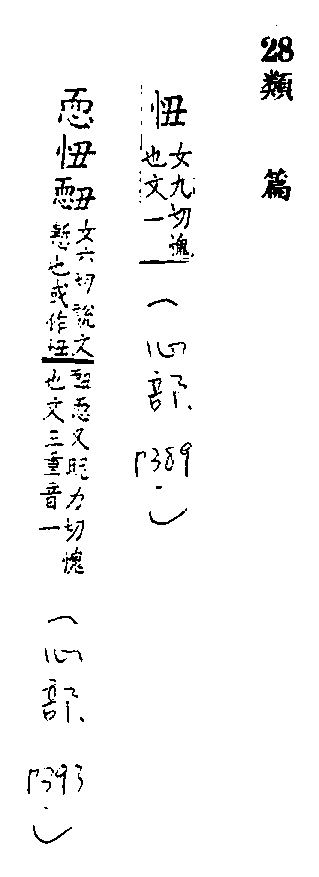 28 類 篇
忸 女九切愧也文一 (心部 P389.)
恧 忸 女六切說文慙也或作 恧又昵力切愧也文三重音一 (心部 P393.)